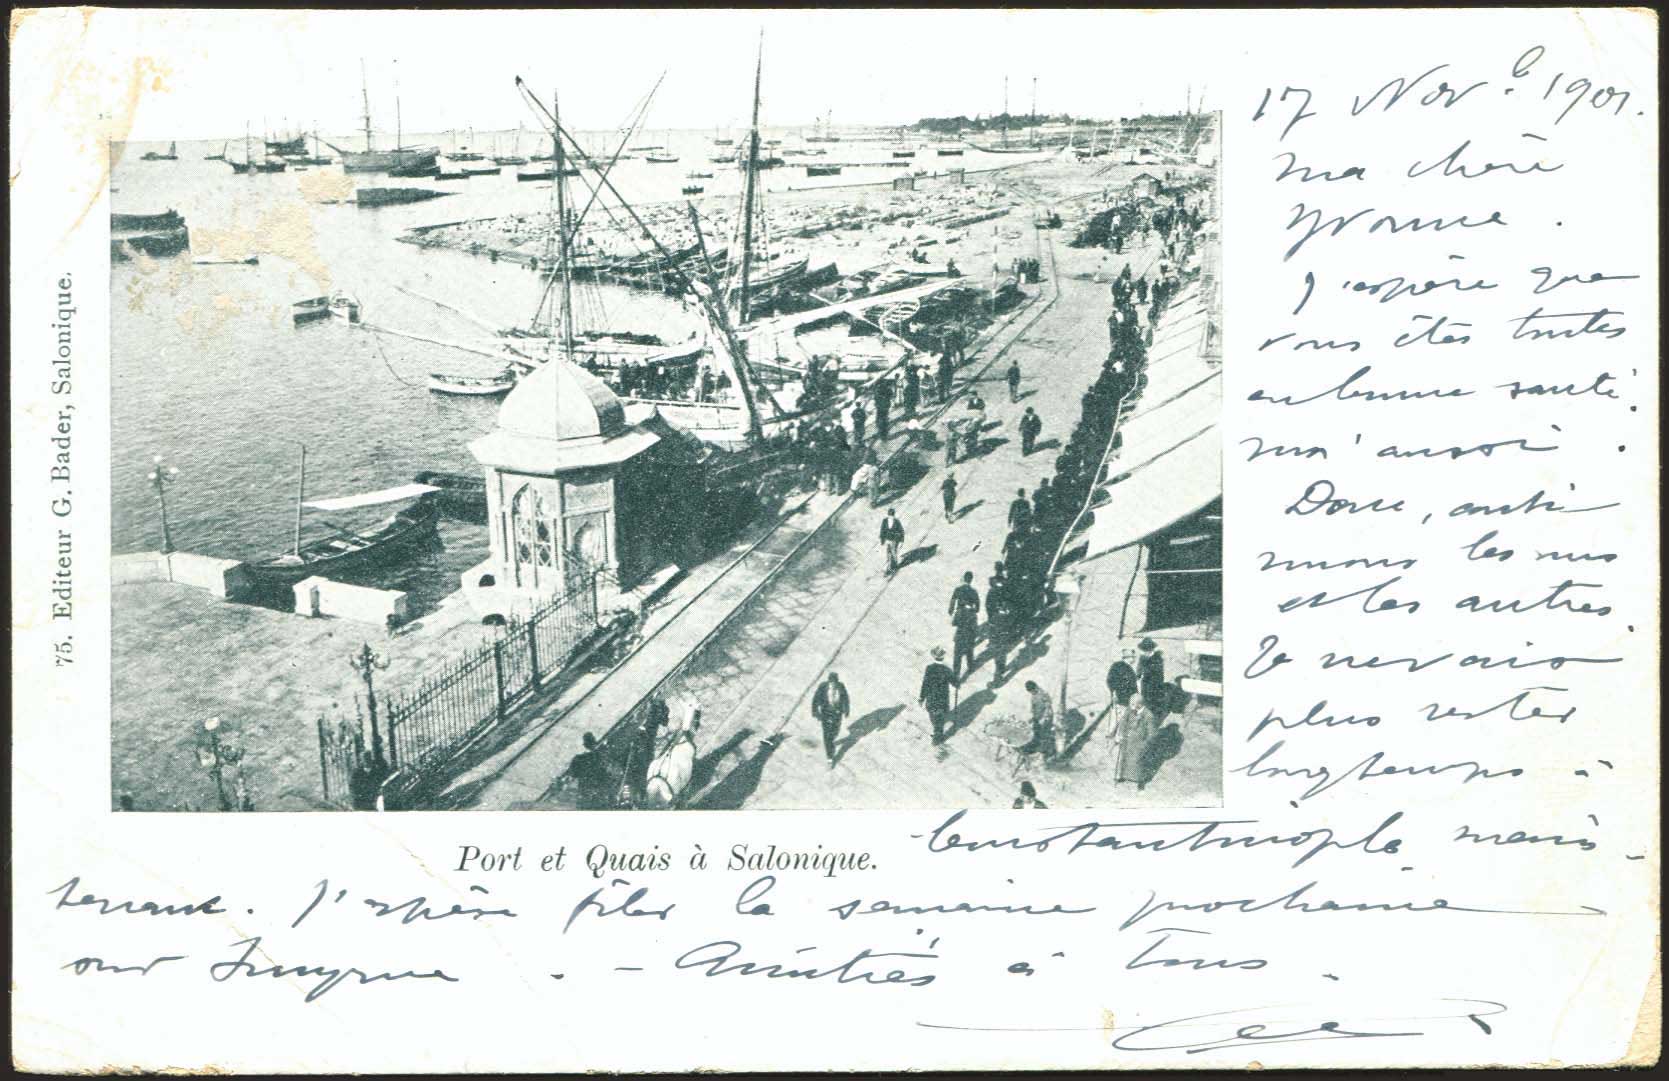 17 Nov.e 1901.
ma chère
Yvonne.
J'espère que
vous êtes toutes
en bonne santé.
moi aussi.
Donc, conti-
nuons les uns
et les autres.
Je ne vais
plus rester
longtemps à
Constantinople main-
tenant. J'espère filer la semaine prochaine
sur Smyrne. - Amitiés à Tous.
Port et Quais à Salonique.
75. Editeur G. Bader, Salonique.